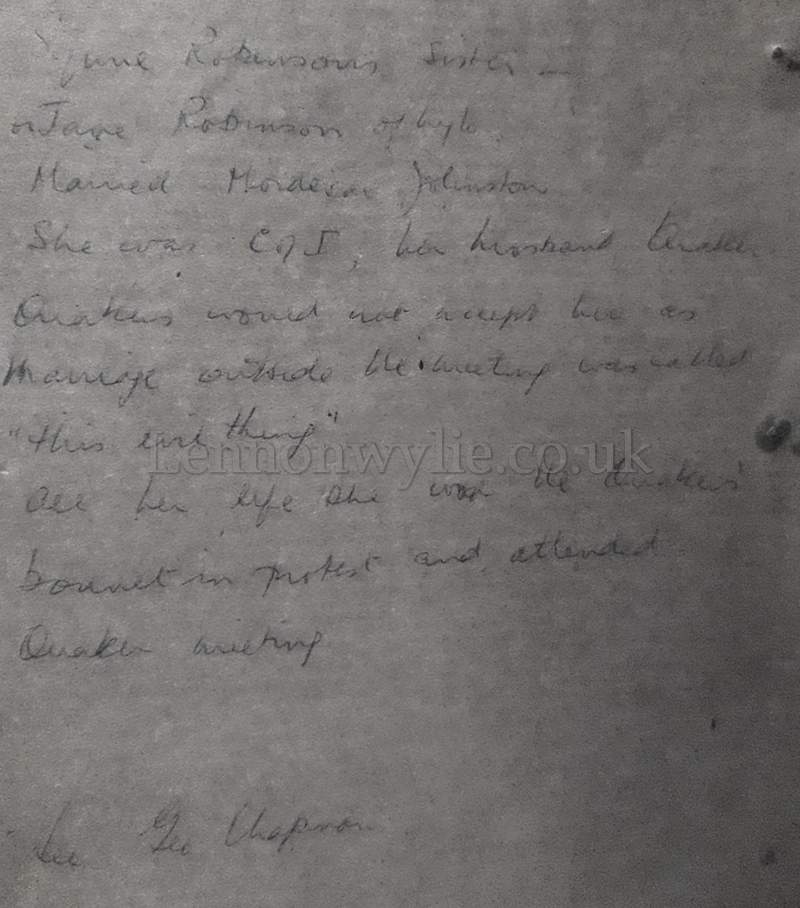 June Robinson's Sister —
or Jane Robinson of
Married Mordecai Johnston
She was C of I, her husband Quaker.
Quakers would not accept her as
Marriage outside the meeting was called
"this evil thing"
Lennonwylie.co.uk
All her life she wore the Quakers
bonnet in protest and attended
Quaker meeting
See Geo Chapman